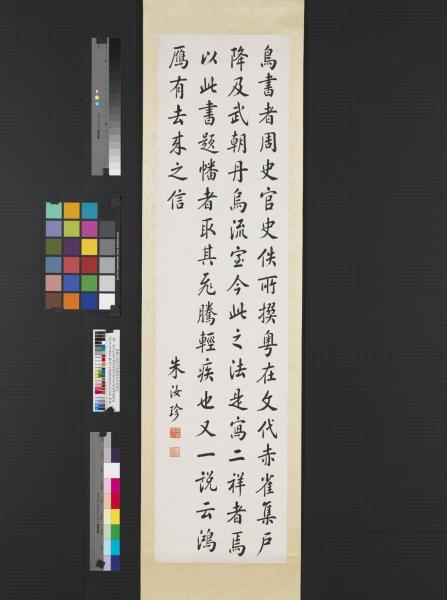 鳥書者周史官史佚所撰粵在文代赤雀集戶
降及武朝丹烏流室今此之法是寫二祥者焉
以此書題幡者取其飛騰輕疾也又一說云鴻
鴈有去來之信
朱汝珍